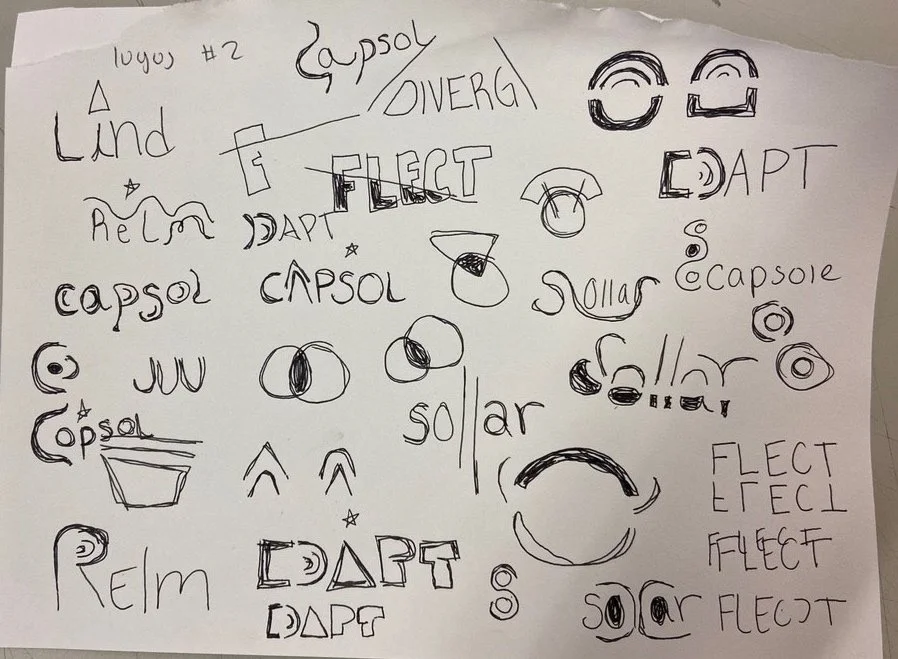 logos #2
Capsol
DIVERG
Lind
FLECT
DAPT
Relm
DAPT
capsol
CAPSOL
Sollar
capsole
Sollar
Capsol
sollar
FLECT
FLECT
FLECT
Relm
DAPT
DAPT
sollar
FLECT